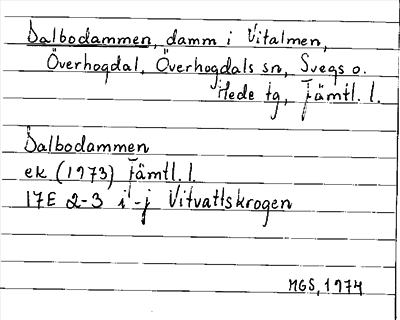 Dalbodammen, damm i Vitalmen,
Överhogdal, Överhogdals sn, Svegs o.
Hede tg, Jämtl. l.
Dalbodammen
ek (1973) Jämtl. l.
17E 2-3 i-j Vitvattskrogen
MGS, 1974